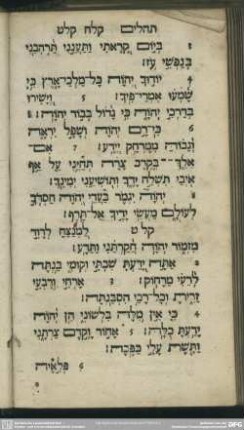 תהלים קלח קלט
3 בְּיוֹם קָרָאתִי וַתַּעֲנֵנִי תַּרְהִבֵנִי
בְנַפְשִׁי עֹז:
4 יוֹדוּךָ יְהוָה כָּל־מַלְכֵי־אָרֶץ כִּי
שָׁמְעוּ אִמְרֵי־פִיךָ: 5 וְיָשִׁירוּ
בְּדַרְכֵי יְהוָה כִּי גָדוֹל כְּבוֹד יְהוָה: 6
כִּי־רָם יְהוָה וְשָׁפָל יִרְאֶה
וְגָבֹהַּ מִמֶּרְחָק יְיֵדָע: 7 אִם־
אֵלֵךְ בְּקֶרֶב צָרָה תְּחַיֵּנִי עַל אַף
אֹיְבַי תִּשְׁלַח יָדֶךָ וְתוֹשִׁיעֵנִי יְמִינֶךָ:
8 יְהוָה יִגְמֹר בַּעֲדִי יְהוָה חַסְדְּךָ
לְעוֹלָם מַעֲשֵׂי יָדֶיךָ אַל־תֶּרֶף:
קלט לַמְנַצֵּחַ לְדָוִד
מִזְמוֹר יְהוָה חֲקַרְתַּנִי וַתֵּדָע:
2 אַתָּה יָדַעְתָּ שִׁבְתִּי וְקוּמִי בַּנְתָּה
לְרֵעִי מֵרָחוֹק: 3 אָרְחִי וְרִבְעִי
זֵרִיתָ וְכָל־דְּרָכַי הִסְכַּנְתָּה:
4 כִּי אֵין מִלָּה בִּלְשׁוֹנִי הֵן יְהוָה
יָדַעְתָּ כֻלָּהּ: 5 אָחוֹר וָקֶדֶם צַרְתָּנִי
וַתָּשֶׁת עָלַי כַּפֶּכָה:
6 פְּלִאיָה